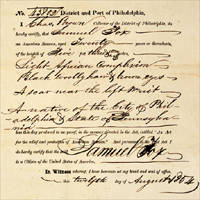 District and Port of Philadelphia,
I Collector of the District of Philadelphia, do
hereby certify, that Samuel Fox
an American Seaman, aged Twenty years or thereabouts,
of the height of Five feet
Light African Complexion
Black woolly hair & brown eyes
A scar near the left wrist
A native of the City of Phil-
adelphia & State of Pennsylva-
nia
has this day produced to me, proof in the manner directed in the Act, entitled "An Act
for the relief and protection of American Seamen," and pursuant to the said Act, I do
hereby certify that the said Samuel Fox
is a Citizen of the United States of America.
In Witness whereof, I have hereunto set my hand and seal of office,
this twelfth day of August 1854